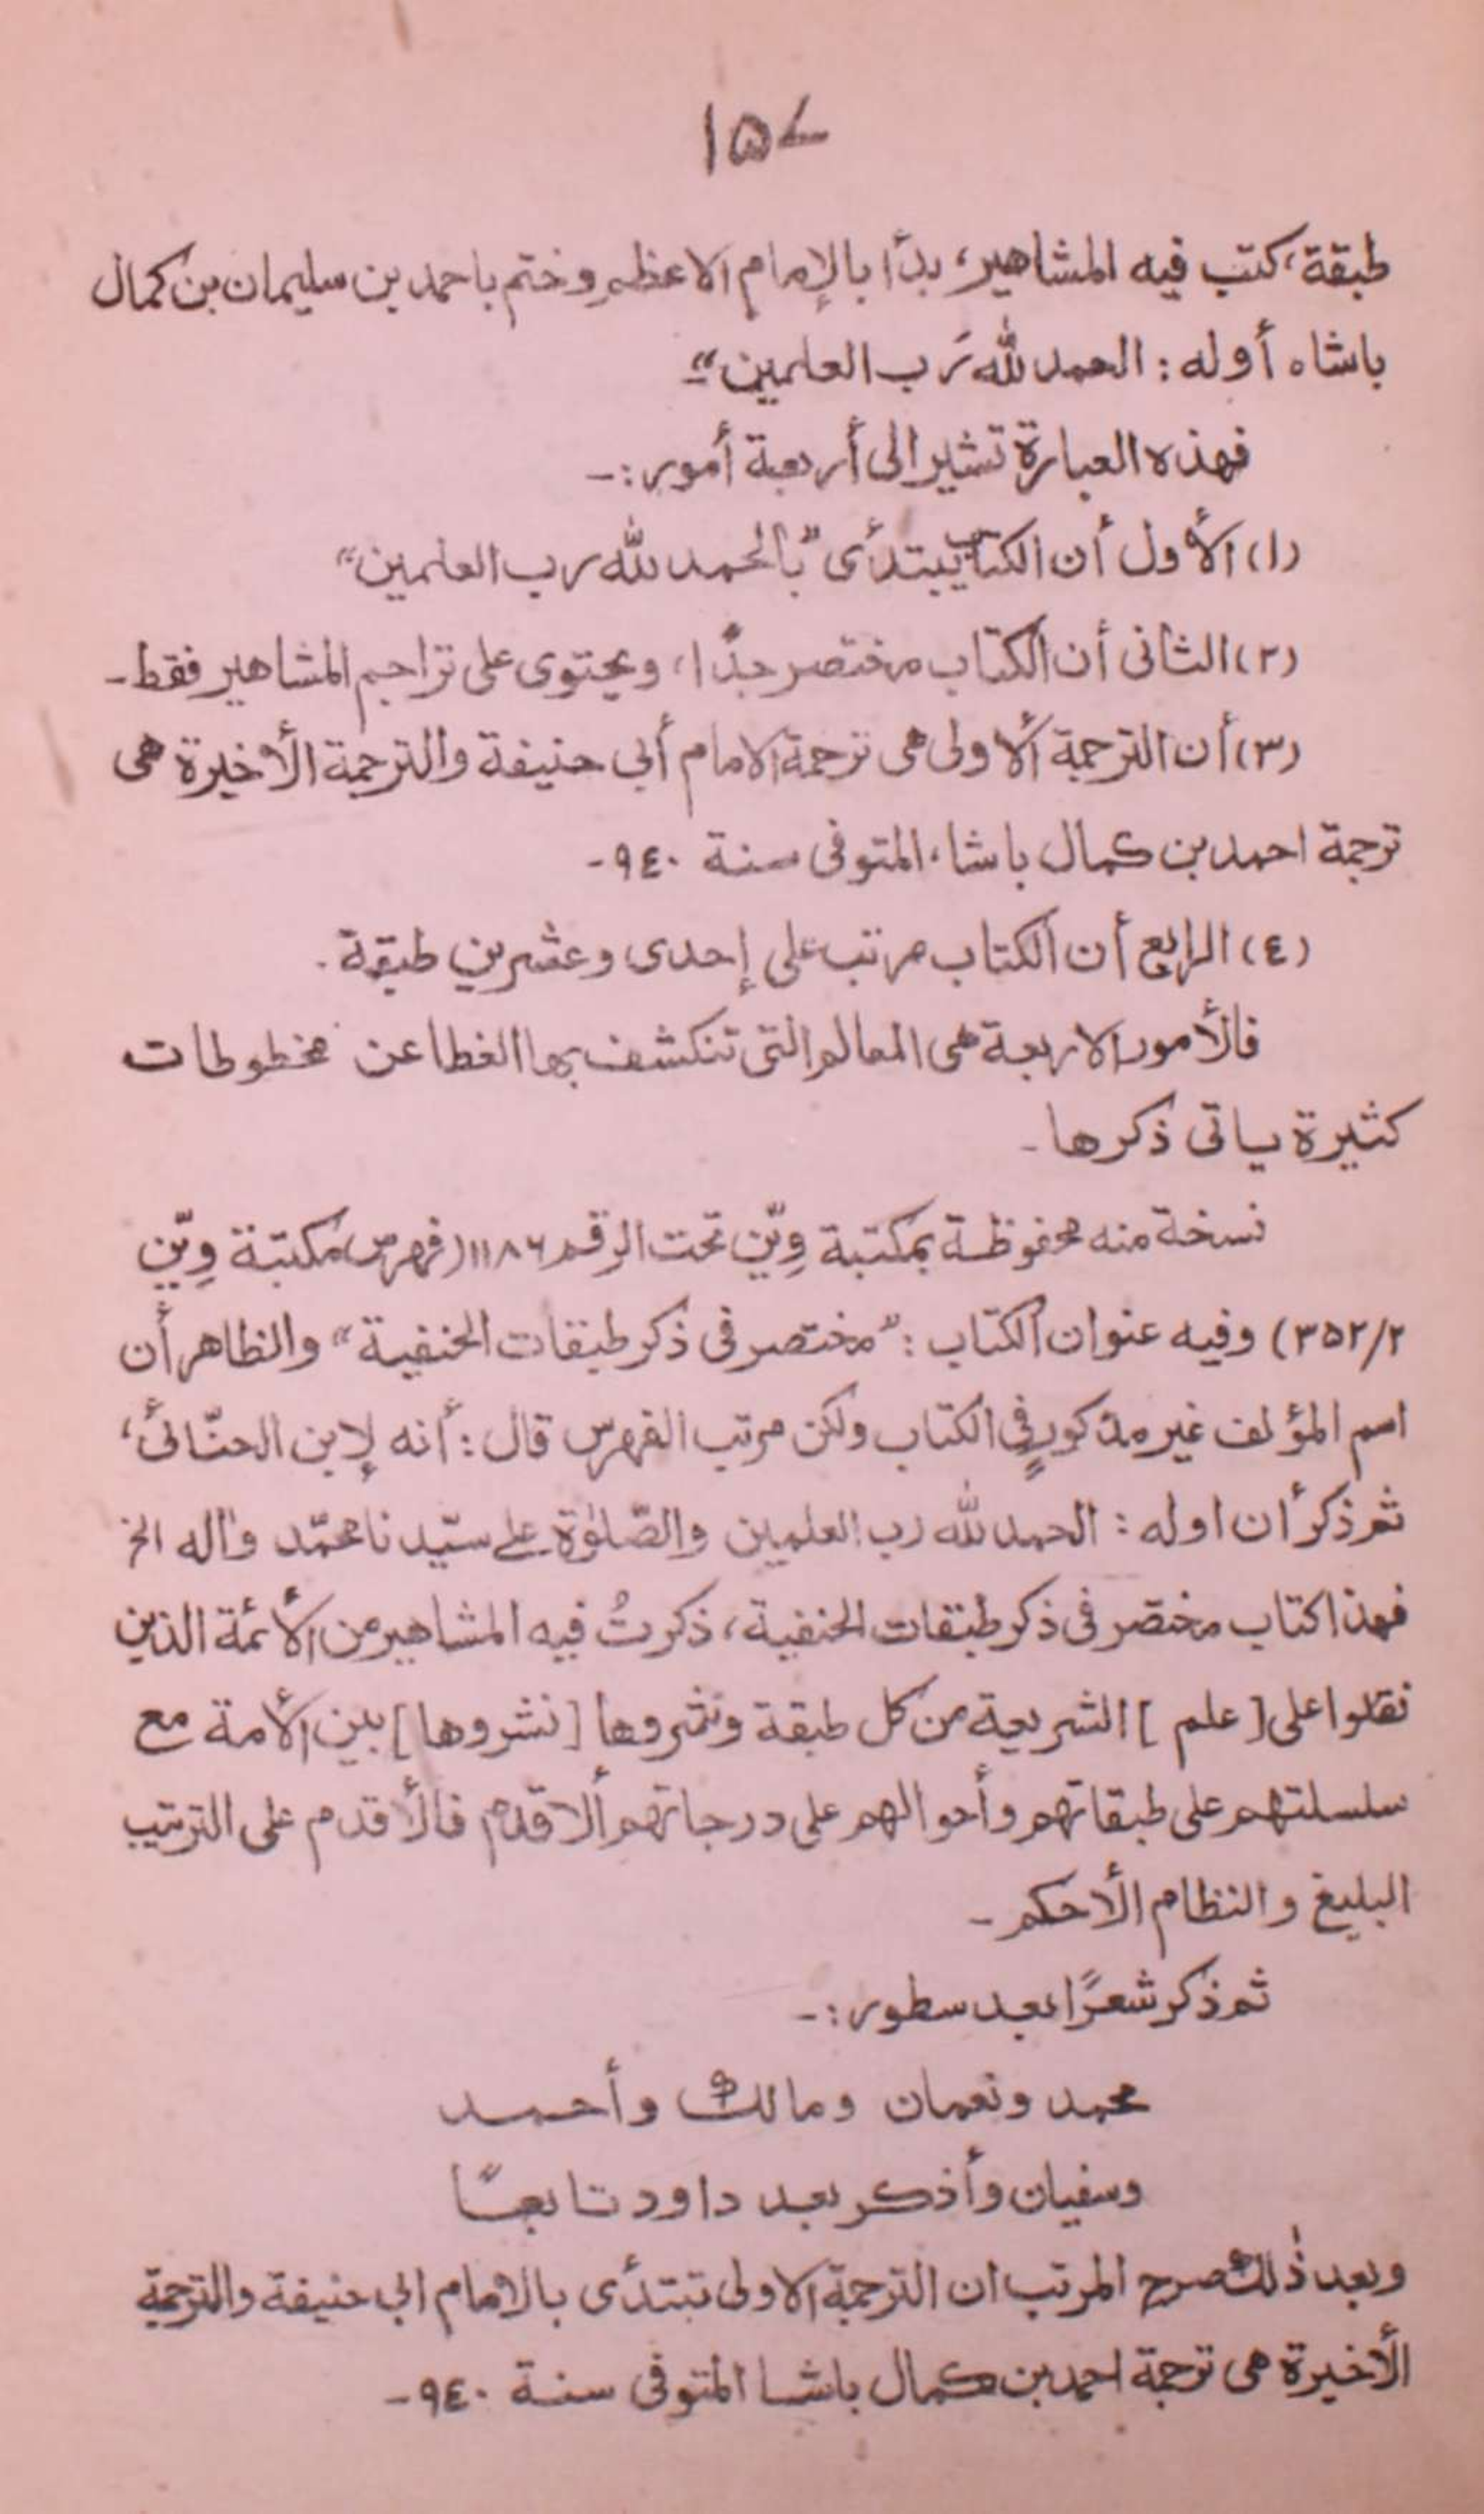 ۱۵۷
طبقة، كتب فيه المشاهير، بدأ بالإمام الاعظم وختم باحمد بن سليمان بن كمال
باشاه أوله : الحمد لله رب العلمين“۔
فهذه العبارة تشير الى أربعة أمور :۔
(۱) الأول أن الكتاب يبتدئ ”بالحمد لله رب العلمين“
(۲) الثانى أن الكتاب مختصر جدًا، ويحتوى على تراجم المشاهير فقط۔
(۳) أن الترجمة الأولى هى ترجمة الامام أبي حنيفة والترجمة الأخيرة هى
ترجمة احمد بن كمال باشا، المتوفى سنة ٩٤٠۔
(٤) الرابع أن الكتاب مرتب على إحدى وعشرين طبقة .
فالأمور الاربعة هى المعالم التى تنكشف بها الغطا عن مخطوطات
كثيرة ياتى ذكرها۔
نسخة منه محفوظة بمكتبة وِيّن تحت الرقم ۱۱۸۶ (فهرس مكتبة وِيّن
۳۵۲/۲) وفيه عنوان الكتاب : ”مختصر فى ذكر طبقات الحنفية“ والظاهر أن
اسم المؤلف غير مذكور في الكتاب ولكن مرتب الفهرس قال : أنه لإبن الحنّائى،
ثم ذكر أن اوله : الحمد لله رب العلمين والصّلوٰة على سيّدنا محمّد واله الخ
فهذا كتاب مختصر فى ذكر طبقات الحنفية، ذكرتُ فيه المشاهير من الأئمة الذين
نقلوا على [علم] الشريعة من كل طبقة ونثروها [نشروها] بين الأمة مع
سلسلتهم على طبقاتهم وأحوالهم على درجاتهم ألاقدم فالأقدم على الترتيب
البليغ والنظام الأحكم۔
ثم ذكر شعرًا بعد سطور :۔
محمد ونعمان ومالك وأحمد
وسفيان وأذكر بعد داود تابعًا
وبعد ذٰلك صرح المرتب ان الترجمة الاولى تبتدئ بالامام ابي حنيفة والترجمة
الأخيرة هى ترجمة احمد بن كمال باشا المتوفى سنة ٩٤٠۔